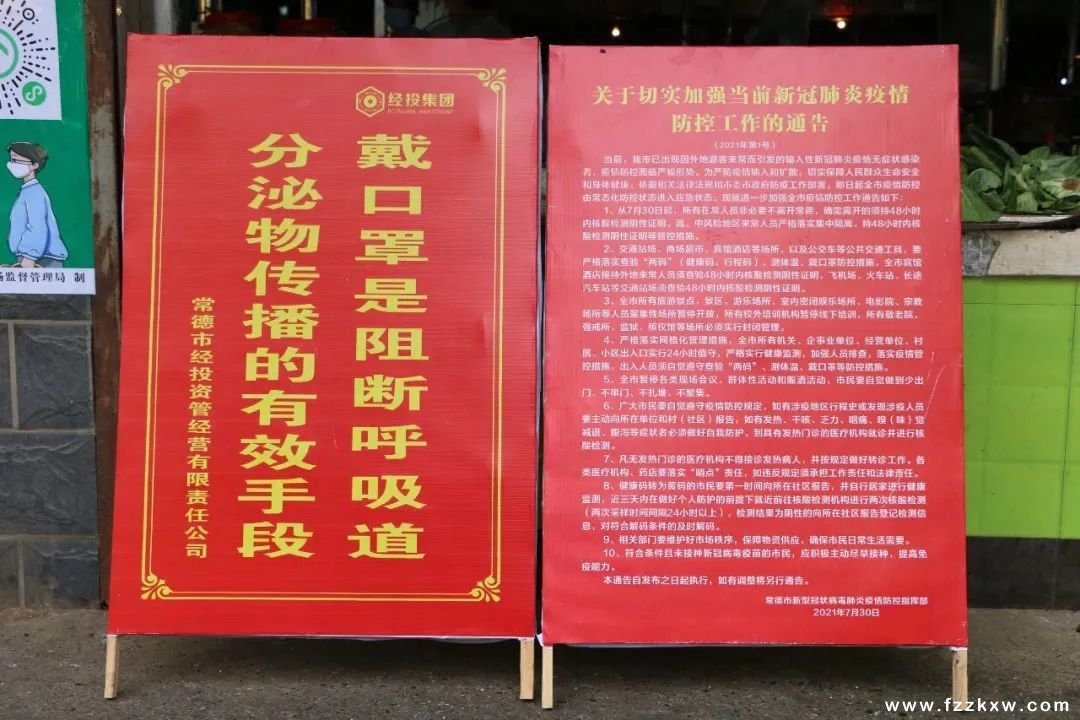 场监督管理局 制
经投集团
ECONOMIC INVESTMENT
戴口罩是阻断呼吸道
分泌物传播的有效手段
常德市经投资管经营有限责任公司
关于切实加强当前新冠肺炎疫情
防控工作的通告
（2021年第1号）
当前，我市已出现因外地游客来常而引发的输入性新冠肺炎疫情无症状感染
者，疫情防控面临严峻形势。为严防疫情输入和扩散，切实保障人民群众生命安全
和身体健康，依据相关法律法规和市委市政府防疫工作部署，即日起全市疫情防控
由常态化防控状态进入应急状态。现就进一步加强全市疫情防控工作通告如下：
1、从7月30日起，所有在常人员非必要不离开常德，确需离开的须持48小时
内核酸检测阴性证明。高、中风险地区来常人员严格落实集中隔离、持48小时内核
酸检测阴性证明等管控措施。
2、交通站场、商场超市、宾馆酒店等场所，以及公交车等公共交通工具，要
严格落实查验“两码”（健康码、行程码）、测体温、戴口罩防控措施，全市宾馆
酒店接待外地来常人员须查验48小时内核酸检测阴性证明，飞机场、火车站、长途
汽车站等交通站场须查验48小时内核酸检测阴性证明。
3、全市所有旅游景点、景区，游乐场所，室内密闭娱乐场所、电影院、宗教
场所等人员聚集性场所暂停开放，所有校外培训机构暂停线下培训，所有敬老院、
强戒所、监狱、殡仪馆等场所必须实行封闭管理。
4、严格落实网格化管理措施，全市所有机关、企事业单位、经营单位、村
居、小区出入口实行24小时值守，严格实行健康监测，加强人员排查，落实疫情管
控措施，出入人员须自觉遵守查验“两码”、测体温、戴口罩等防控措施。
5、全市暂停各类现场会议、群体性活动和赈酒活动，市民要自觉做到少出
门、不串门、不扎堆、不聚集。
6、广大市民要自觉遵守疫情防控规定，如有涉疫地区行程史或发现涉疫人员
要主动向所在单位和村（社区）报告，如有发热、干咳、乏力、咽痛、嗅（味）觉
减退、腹泻等症状者必须做好自我防护，到具有发热门诊的医疗机构就诊并进行核
酸检测。
7、凡无发热门诊的医疗机构不得接诊发热病人，并按规定做好转诊工作。各
类医疗机构、药店要落实“哨点”责任，如违反规定须承担工作责任和法律责任。
8、健康码转为黄码的市民要第一时间向所在社区报告，并自行居家进行健康
监测，近三天内在做好个人防护的前提下就近前往核酸检测机构进行两次核酸检测
（两次采样时间间隔24小时以上），检测结果为阴性的向所在社区报告登记检测信
息，对符合解码条件的及时解码。
9、相关部门要维护好市场秩序，保障物资供应，确保市民日常生活需要。
10、符合条件且未接种新冠病毒疫苗的市民，应积极主动尽早接种，提高免
疫能力。
本通告自发布之日起执行，如有调整将另行通告。
常德市新型冠状病毒肺炎疫情防控指挥部
2021年7月30日
www.fzzkxw.com